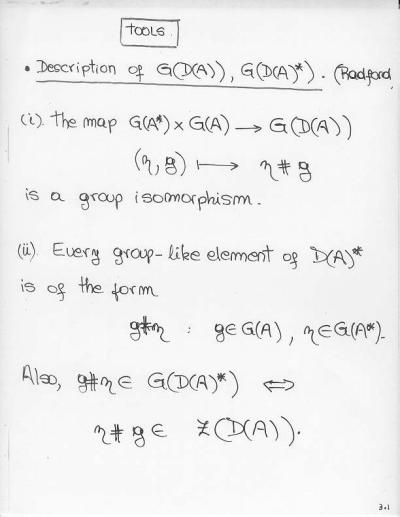 TOOLS
• Description of G(D(A)), G(D(A)*). (Radford)
(i). The map G(A*) × G(A) → G(D(A))
(η, g) ⟼ η # g
is a group isomorphism.
(ii). Every group-like element of D(A)*
is of the form
g#η : g∈G(A), η∈G(A*).
Also, g#η ∈ G(D(A)*) ⇔
η # g ∈ Z(D(A)).
3.1